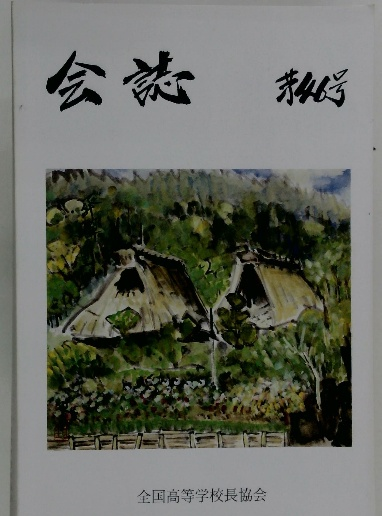 会誌 第46号
全国高等学校長協会